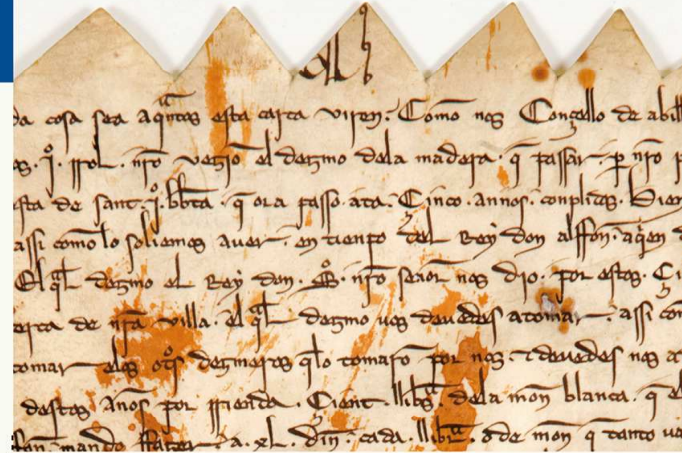 da cosa sea a q̃ntos esta carta viren. Como nos Conçello de abill
. nr̃o vezĩo el dezmo dela madera. q̃ passar p nr̃o p
sta de sant. bb̃ta. q̃ ora passo. ata. Cinco. annos. conplidos. Bien
assi como lo soliemos auer. en tienpo del Rey don alffon. aq̃en
El q̃l dezmo el Rey don. S. nr̃o senor nos dio. por estos. Ci
erta de nr̃a villa. el q̃l dezmo uos deuedes a tomar. assi com
tomar elos ot̃s dezmeros q̃ lo tomarõ por nos. τ deuedes nos a
destos Anos por rrienda. Cient. llib̃s dela mon blanca. q̃ el
mando ffazer. a. xl. dĩn. cada. llibra. de mon q̃ tanto ua